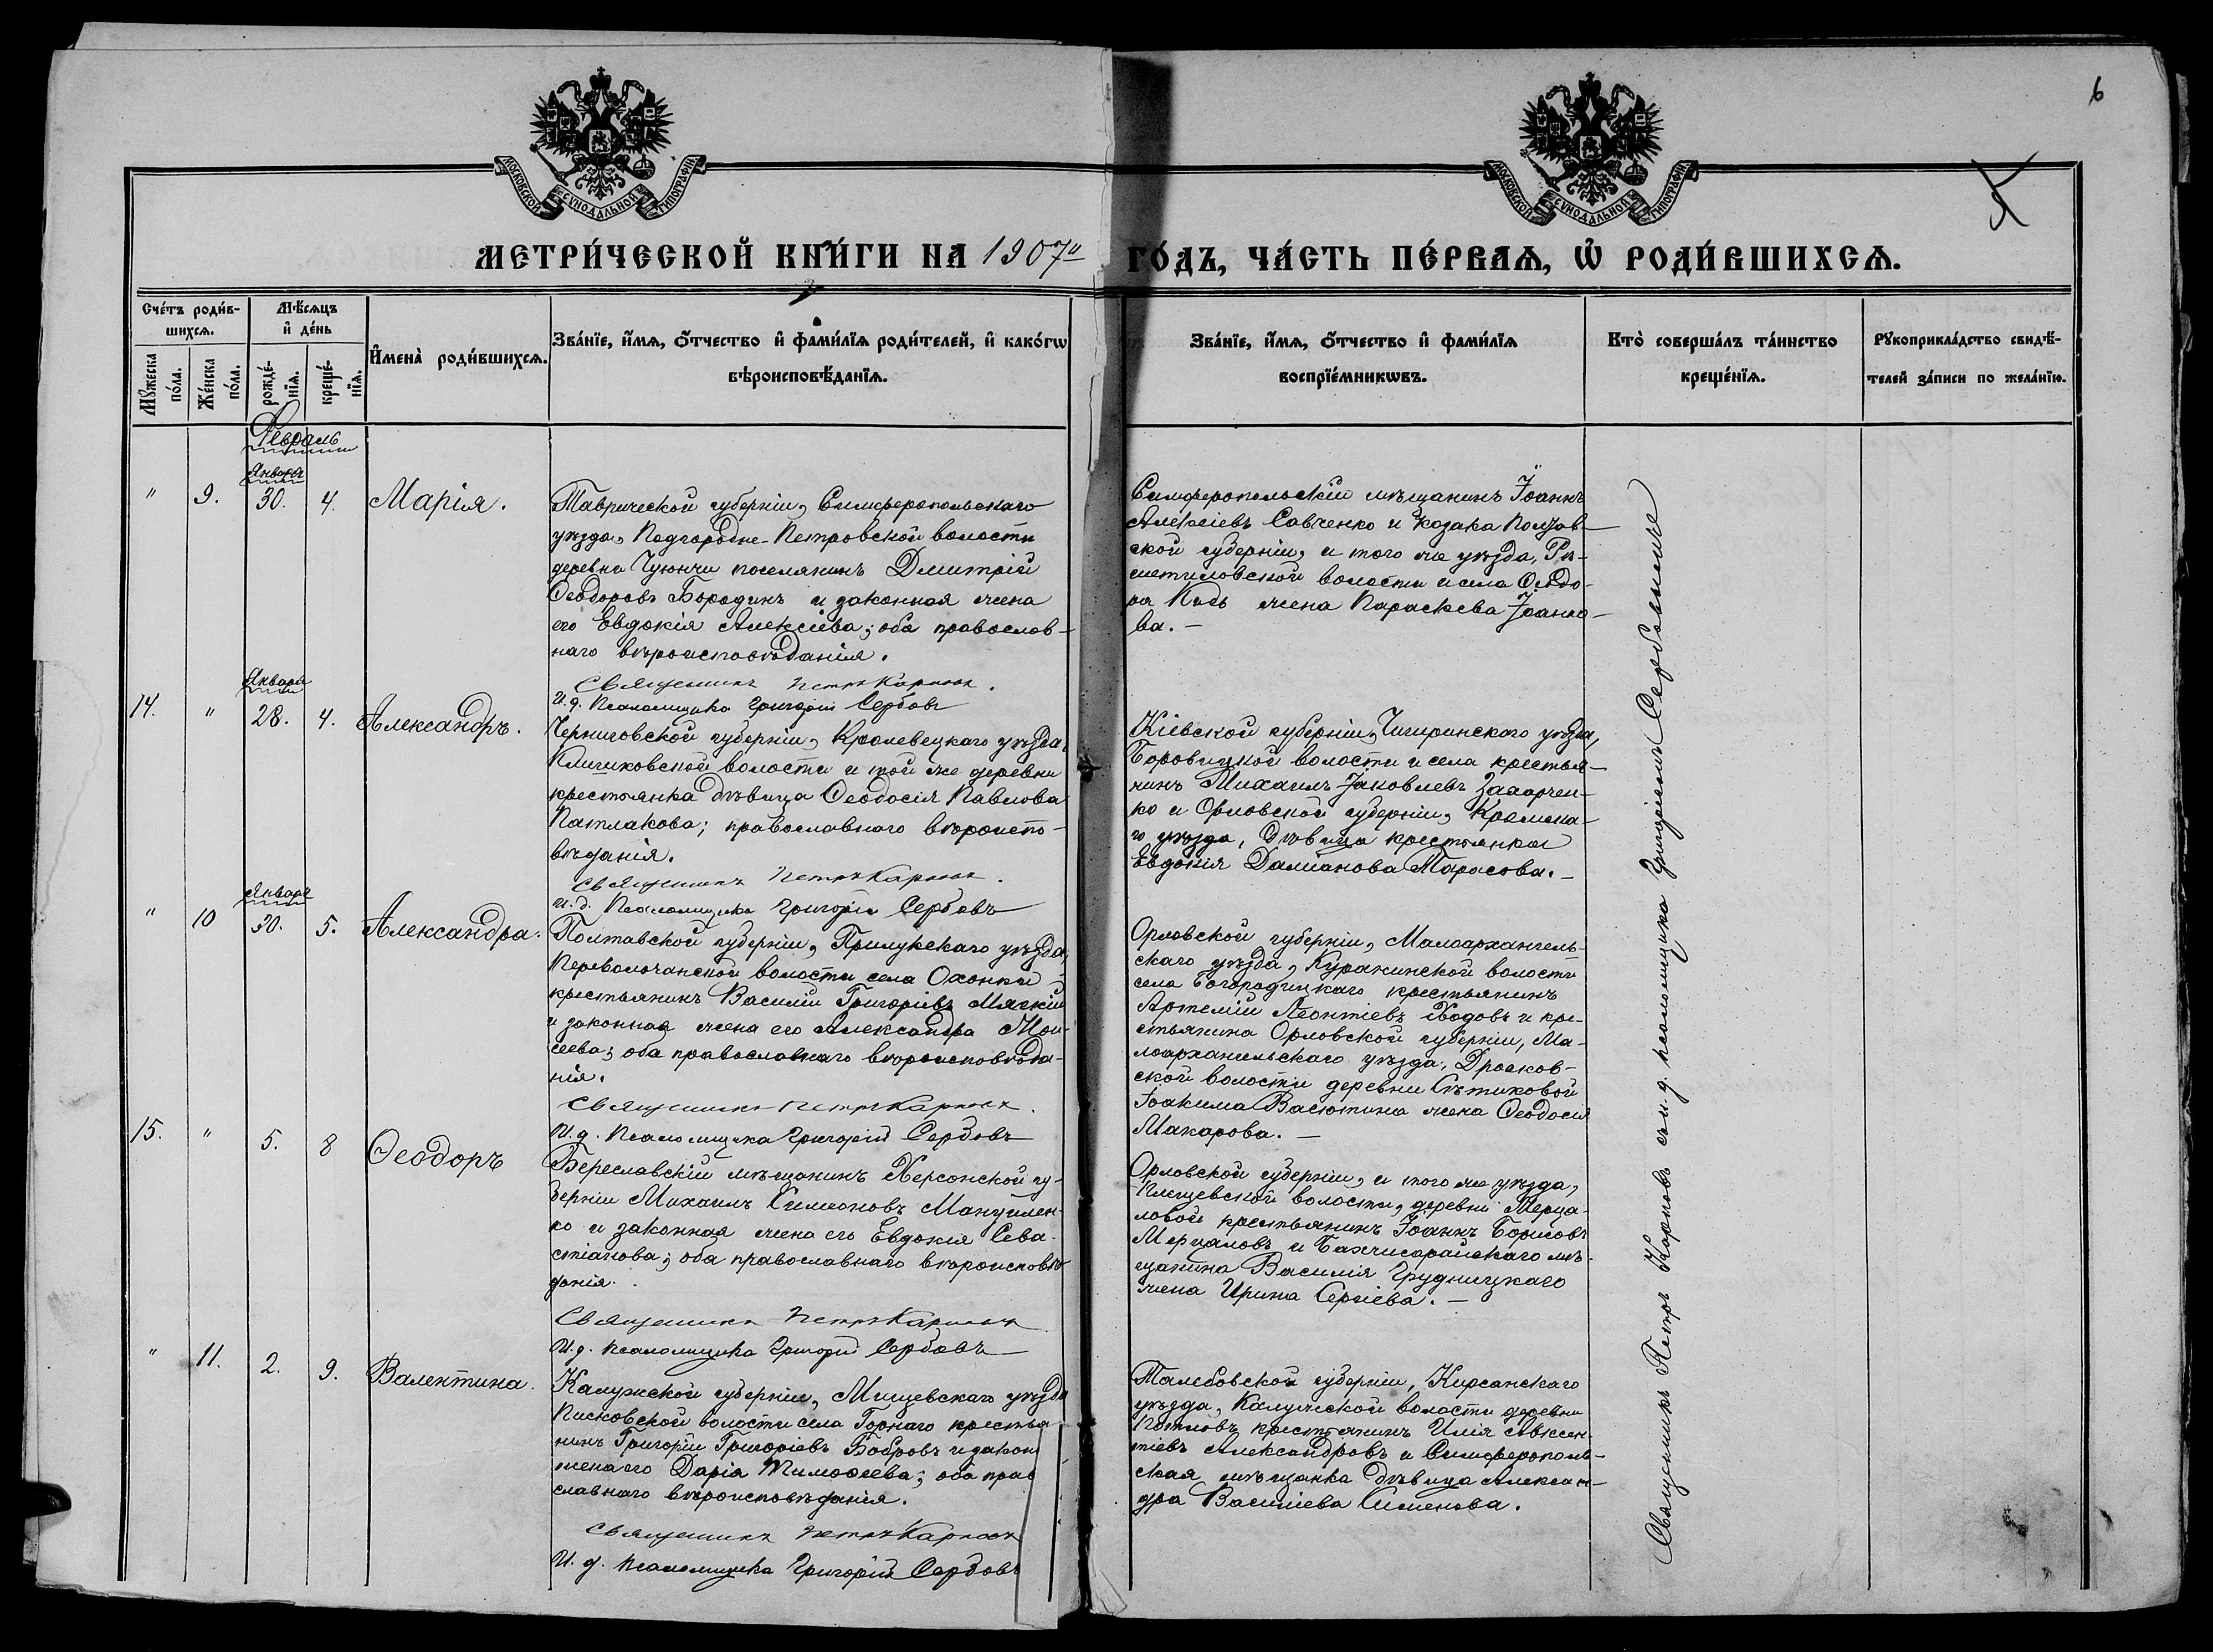 6
5
МОСКОВСКОЙ СѴНОДАЛЬНОЙ ТИПОГРАФІИ
МОСКОВСКОЙ СѴНОДАЛЬНОЙ ТИПОГРАФІИ
МЕТРИ́ЧЕСКОЙ КНИ́ГИ НА 1907й ГО́ДЪ, ЧА́СТЬ ПЕ́РВАѦ, Ѡ҆ РОДИ́ВШИХСѦ.
Сче́тъ роди́в-
шихсѧ.
Мꙋ́жеска по́ла.
Же́нска по́ла.
Мѣ́сѧцъ
и҆ де́нь
рожде́-
нїѧ.
креще́-
нїѧ.
И҆мена̀ роди́вшихсѧ.
Зва́нїе, и҆́мѧ, ѻ҆́тчество и҆ фами́лїѧ роди́телей, и҆ како́гѡ
вѣроисповѣ́данїѧ.
Зва́нїе, и҆́мѧ, ѻ҆́тчество и҆ фами́лїѧ
воспрїе́мникѡвъ.
Кто̀ соверша́лъ та́инство
креще́нїѧ.
Рꙋкоприкла́дство свидѣ́-
телей за́писи по жела́нїю.
Февраль
" 9. Января 30. 4. Марія.
Таврической губерніи, Симферопольскаго
уѣзда, Подгородне-Петровской волости
деревни Чуюнчи поселянинъ Дмитрій
Ѳеодоровъ Бородинъ и законная жена
его Евдокія Алексіева; оба православ-
наго вѣроисповѣданія.
Священникъ Петръ Карповъ.
И. д. Псаломщика Григорій Сербовъ
Симферопольскій мѣщанинъ Іоаннъ
Алексіевъ Савченко и козака Полтав-
ской губерніи, и того же уѣзда, Рѣ-
шетиловской волости и села Ѳеодо-
ра жена Параскева Іоанно-
ва.-
14. " Января 28. 4. Александръ.
Черниговской губерніи, Кролевецкаго уѣзда,
Клишковской волости и той же деревни
крестьянка дѣвица Ѳеодосія Павлова
Патлакова; православнаго вѣроиспо-
вѣданія.
Священникъ Петръ Карповъ.
И. д. Псаломщика Григорій Сербовъ
Кіевской губерніи, Чигиринскаго уѣзда,
Боровицкой волости и села крестья-
нинъ Михаилъ Іаковлевъ
ко и Орловской губерніи, Кромска-
го уѣзда, дѣвица крестьянка
Евдокія Даміанова Тарасова.-
" 10 Января 30. 5. Александра.
Полтавской губерніи, Прилукскаго уѣзда,
Переволочанской волости села Охонки
крестьянинъ Василій Григоріевъ Мягкій
и законная жена его Александра Мои-
сеева; оба православнаго вѣроисповѣда-
нія.
Священникъ Петръ Карповъ.
И. д. Псаломщика Григорій Сербовъ
Орловской губерніи, Малоархангель-
скаго уѣзда, Куракинской волости
села Богородицкаго крестьянинъ
Артемій Леонтіевъ Ходовъ и кре-
стьянина Орловской губерніи, Ма-
лоархангельскаго уѣзда, Дросков-
ской волости деревни
Іоакима Васютина жена Ѳеодосія
Макарова.-
15. " 5. 8 Ѳеодоръ
Береславскій мѣщанинъ Херсонской гу-
берніи Михаилъ Симеоновъ Мануилен-
ко и законная жена его Евдокія Сева-
стіанова; оба православнаго вѣроисповѣ-
данія.
Священникъ Петръ Карповъ
И. д. псаломщика Григорій Сербовъ
Орловской губерніи, и того же уѣзда,
Плещевской волости, деревни Мерца-
ловой крестьянинъ Іоаннъ Борисовъ
Мерцаловъ и Бахчисарайскаго мѣ-
щанина Василія Грудницкаго
жена Ирина Сергіева.-
" 11. 2. 9. Валентина.
Калужской губерніи, Мещевскаго уѣзда
Писковской волости села Горнаго крестья
нинъ Григорій Григоріевъ Бобровъ и закон
жена его Дарія Тимоѳеева; оба прав
славнаго вѣроисповѣданія.
Священникъ Петръ Карповъ
И. д. псаломщика Григорій Сербовъ
Тамбовской губерніи, Кирсанскаго
уѣзда, волости деревни
крестьянинъ Илія Авксен-
тіевъ Александровъ и Симферополь-
ская мѣщанка дѣвица Алексан-
дра Василіева Сименова.
Священникъ Петръ Карповъ съ и. д. псаломщика Григоріемъ Сербовымъ